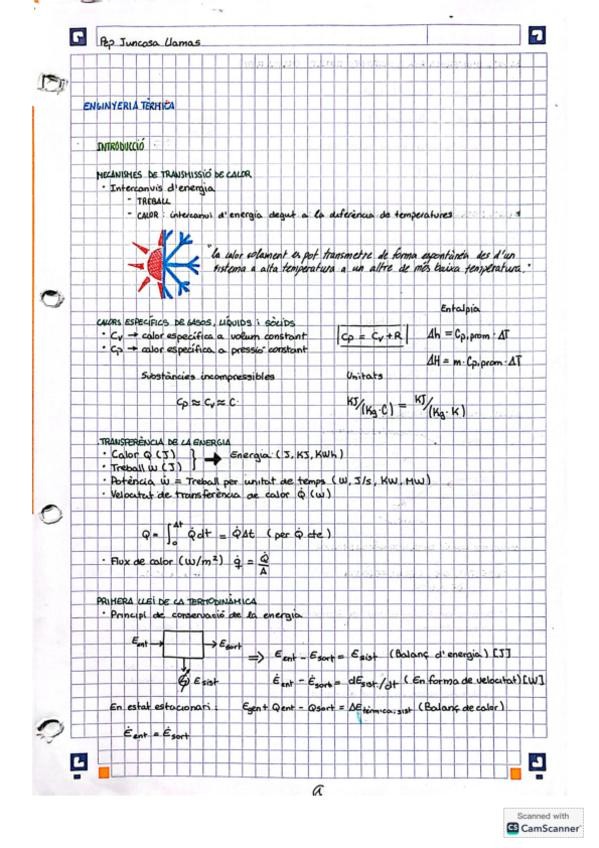 Pep Juncosa Llamas
ENGINYERIA TÈRMICA
INTRODUCCIÓ
MECANISMES DE TRANSMISSIÓ DE CALOR
· Intercanvis d'energia
- TREBALL
- CALOR: intercanvi d'energia degut a la diferència de temperatures
"La calor solament es pot transmetre de forma espontània des d'un
sistema a alta temperatura a un altre de més baixa temperatura."
CALORS ESPECÍFICS DE GASOS, LÍQUIDS i SÒLIDS
Entalpia
· Cv → calor específica a volum constant
Cp = Cv + R
Δh = Cp,prom · ΔT
· Cp → calor específica a pressió constant
ΔH = m · Cp,prom · ΔT
Substàncies incompressibles
Unitats
Cp ≈ Cv ≈ C
KJ/(Kg·C) = KJ/(Kg·K)
TRANSFERÈNCIA DE LA ENERGIA
· Calor Q (J)
· Treball W (J) } → Energia (J, KJ, KWh)
· Potència ẇ = Treball per unitat de temps (W, J/s, KW, MW)
· Velocitat de transferència de calor Q̇ (W)
Q = ∫₀^Δt Q̇dt = Q̇Δt (per Q̇ cte)
· Flux de calor (W/m²) q̇ = Q̇/A
PRIMERA LLEI DE LA TERMODINÀMICA
· Principi de conservació de la energia
Eent → → Esort
⇒ Eent - Esort = Esist (Balanç d'energia) [J]
Esist
Ėent - Ėsort = dEsist/dt (En forma de velocitat) [W]
En estat estacionari:
Egen + Qent - Qsort = ΔEtèrmica,sist (Balanç de calor)
Ėent = Ėsort
a
Scanned with
CS CamScanner